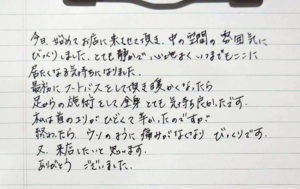 今日、始めてお店に来させて頂き、中の空間の雰囲気に
びっくりしました。とても静かで心地よくいつまでもここに
居たくなる気持ちになりました。
最初にフートバスをして頂き暖かくなったら
足からの施術をして全身とても気持ち良かったです。
私は首のコリがひどくて辛かったのですが
終わったら、ウソのように痛みがなくなりびっくりです。
又、来店したいと思います。
ありがとうございました。